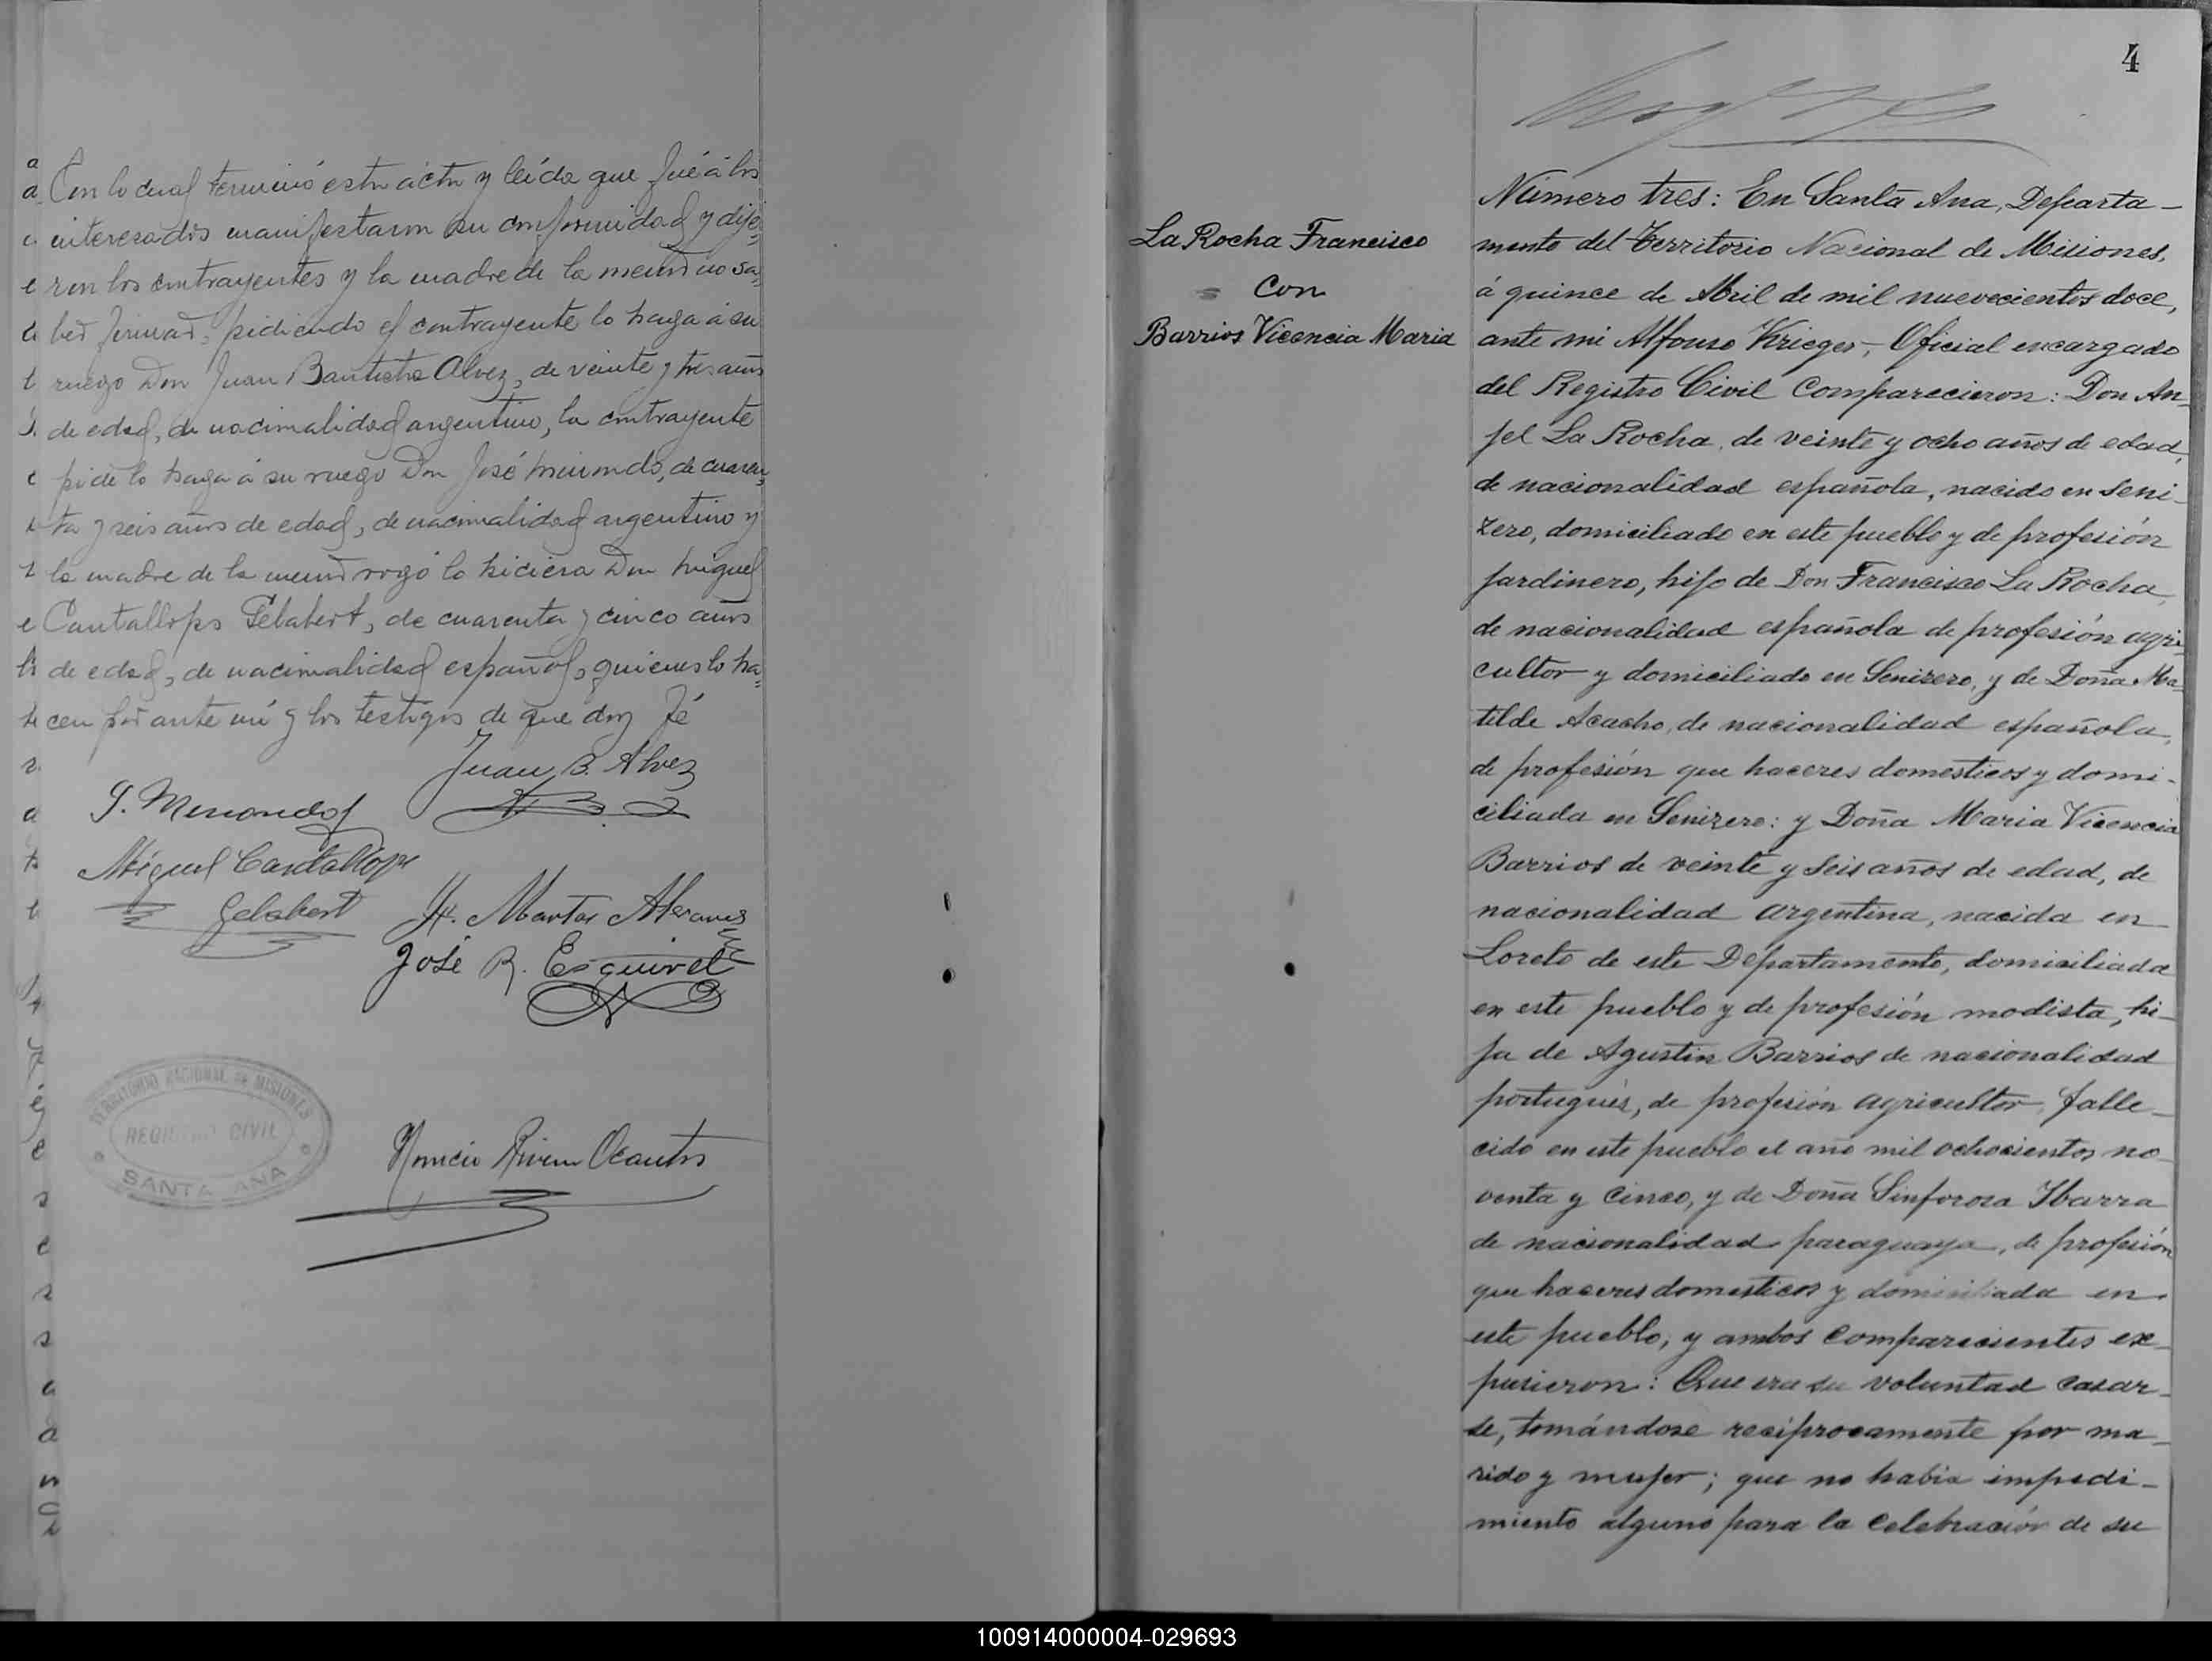 Con lo cual terminó esta acta y leída que fué á los
interesados manifestaron su conformidad y dije=
ron los contrayentes y la madre de la menor no sa=
ber firmar, pidiendo el contrayente lo haga á su
ruego Don Juan Bautista Alvez, de veinte y tres años
de edad, de nacionalidad argentino, la contrayente
pide lo haga á su ruego Don José , de cuaren=
ta y seis años de edad, de nacionalidad argentino y
la madre de la menor rogó lo hiciera Don Miguel
Cantallops Gelabert, de cuarenta y cinco años
de edad, de nacionalidad español, quienes lo ha=
cen por ante mí y los testigos de que doy fé
Juan B. Alvez
Miguel Cantallops
Gelabert
José R. Esquivel
TERRITORIO NACIONAL DE MISIONES
REGISTRO CIVIL
SANTA ANA
4
La Rocha Francisco
Con
Barrios Vicencia Maria
Número tres: En Santa Ana, Departa-
mento del Territorio Nacional de Misiones,
á quince de Abril de mil nuevecientos doce,
ante mi Alfonso Krieger, Oficial encargado
del Registro Civil Comparecieron: Don An-
jel La Rocha, de veinte y ocho años de edad,
de nacionalidad española, nacido en Seni-
zero, domiciliado en este pueblo y de profesión
jardinero, hijo de Don Francisco La Rocha,
de nacionalidad española de profesión agri-
cultor y domiciliado en Senizero, y de Doña Ma-
tilde Acacho, de nacionalidad española,
de profesión que haceres domesticos y domi-
ciliada en Senizero: y Doña Maria Vicencia
Barrios de veinte y seis años de edad, de
nacionalidad argentina, nacida en
Loreto de este Departamento, domiciliada
en este pueblo y de profesión modista, hi-
ja de Agustin Barrios de nacionalidad
portugués, de profesión agricultor, falle-
cido en este pueblo el año mil ochocientos no-
venta y cinco, y de Doña Sinforosa Ybarra
de nacionalidad paraguaya, de profesión
que haceres domesticos y domiciliada en
este pueblo; y ambos comparecientes ex-
pusieron: Que era su voluntad casar-
se, tomándose reciprocamente por ma-
rido y mujer; que no habia impedi-
miento alguno para la celebración de su
100914000004-029693